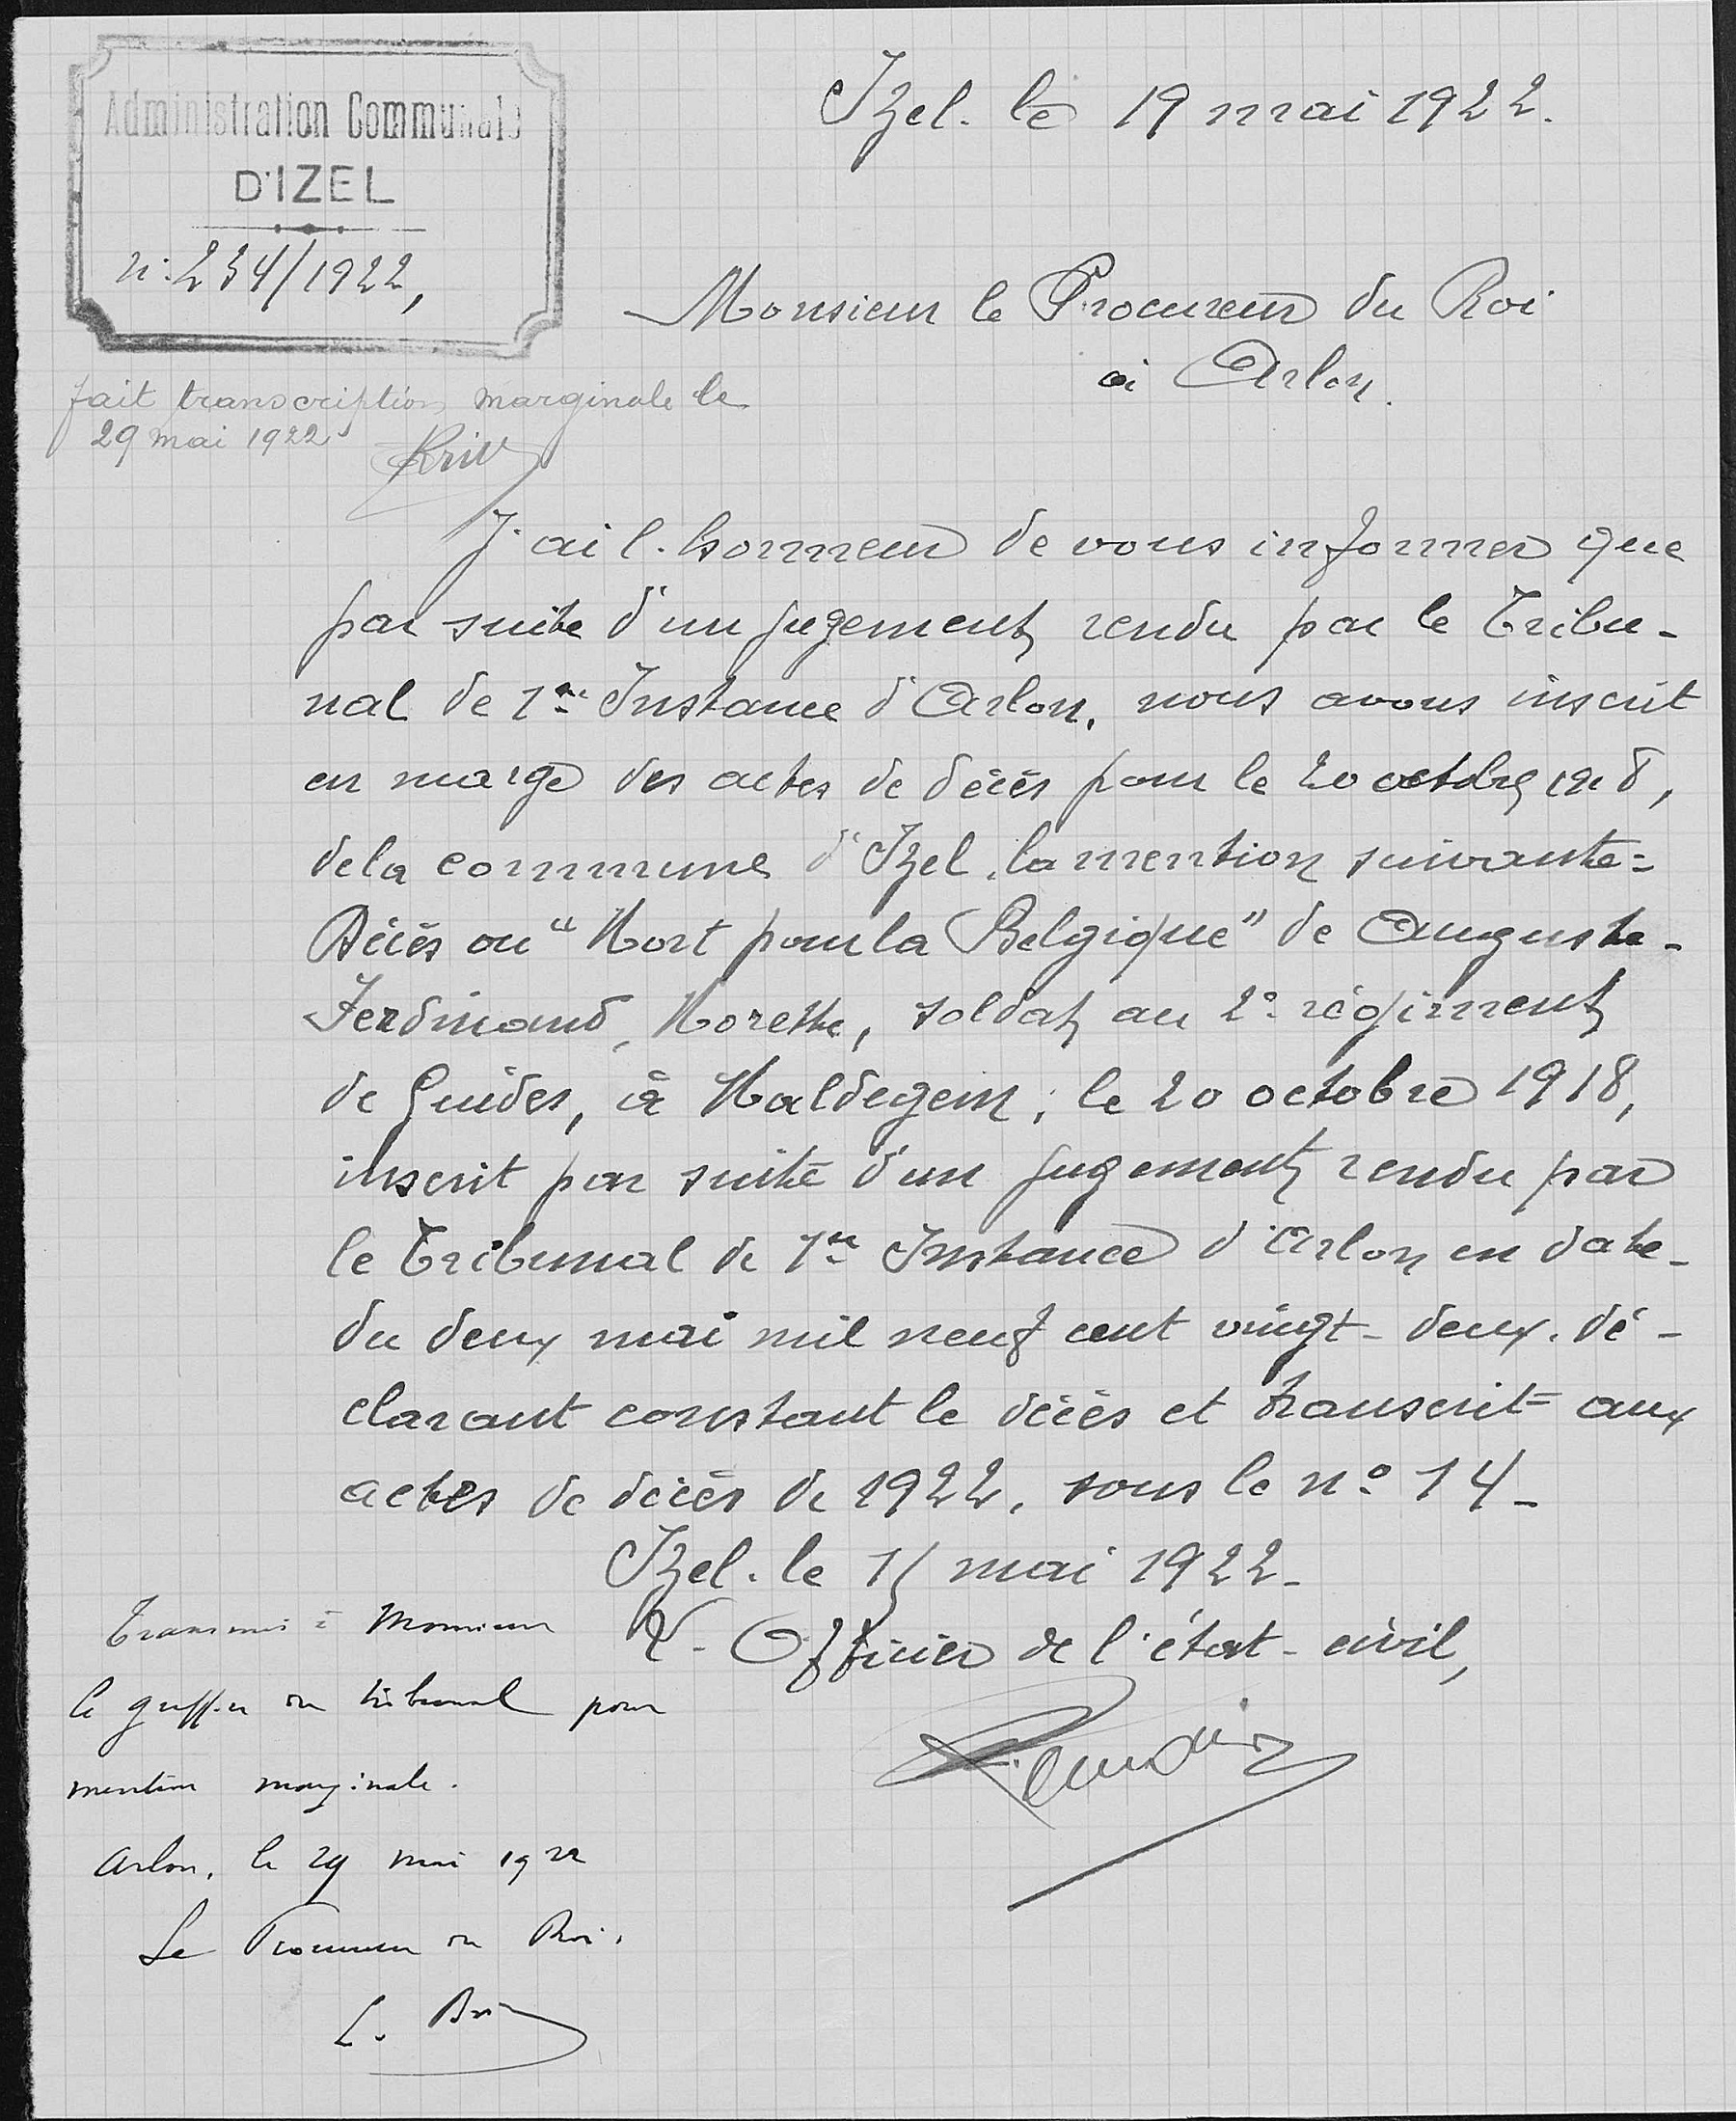 Administration Communale
D'IZEL
n: 234/1922,
Izel. le 19 mai 1922.
Monsieur le Procureur du Roi
à Arlon.
fait transcription marginale le
29 mai 1922
J'ai l'honneur de vous informer que
par suite d'un jugement rendu par le Tribu-
nal de 1re Instance d'Arlon, nous avons inscrit
en marge des actes de décès pour le 20 octobre 1918,
de la commune d'Izel, la mention suivante =
Décès ou "Mort pour la Belgique" de Auguste-
Ferdinand, Morette, soldat au 2e régiment
de Guides, à Maldegem, le 20 octobre 1918,
inscrit par suite d'un jugement rendu par
le Tribunal de 1re Instance d'Arlon en date
du deux mai mil neuf cent vingt-deux. dé-
clarant constant le décès et transcrit aux
actes de décès de 1922, sous le n° 14 -
Izel. le 15 mai 1922 -
L'Officier de l'état-civil,
Transmis à Monsieur
le greffier du tribunal pour
mention marginale.
Arlon, le 29 mai 1922
Le Procureur du Roi.